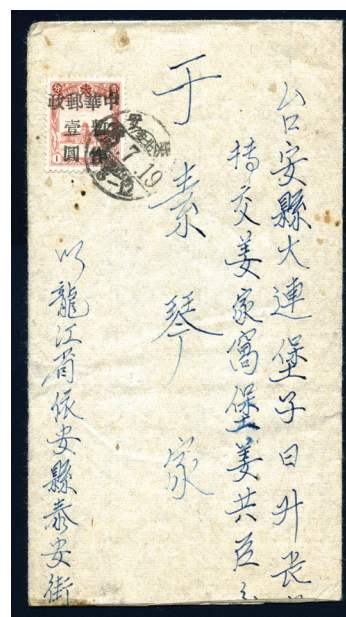 台安縣大連堡子日升長
轉交姜家窩堡姜共臣
于素琴家
龍江省依安縣泰安街
中華郵政
暫作
壹圓
7 19